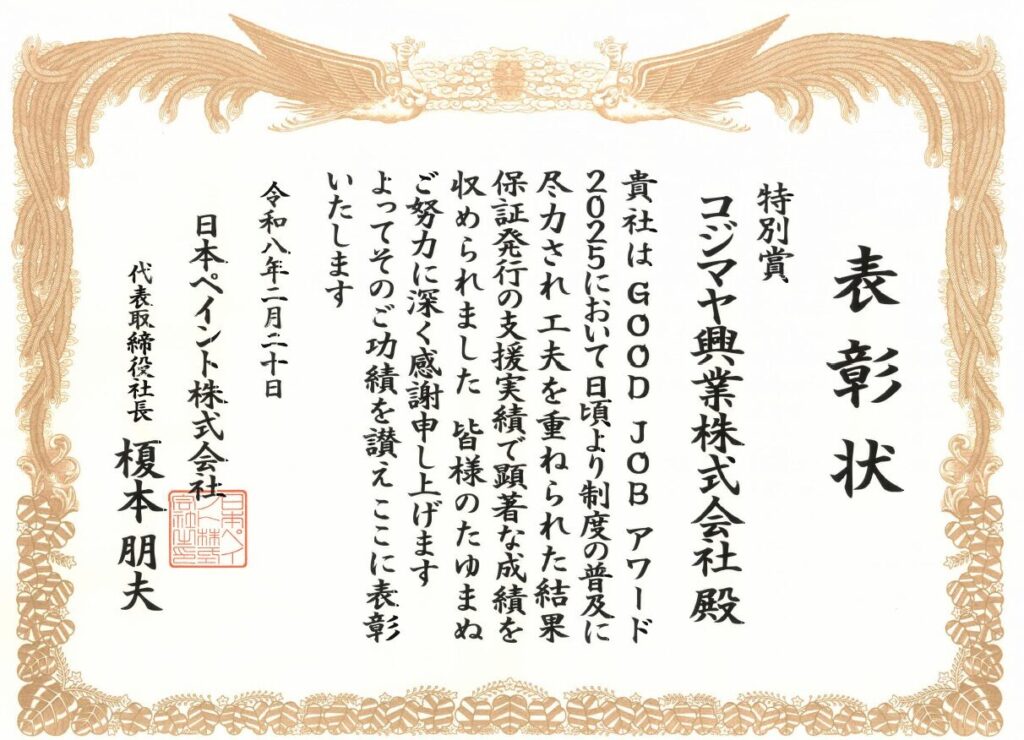 表彰状
特別賞
コジマヤ興業株式会社 殿
貴社は GOOD JOB アワード
2025において日頃より制度の普及に
尽力され 工夫を重ねられた結果
保証発行の支援実績で顕著な成績を
収められました 皆様のたゆまぬ
ご努力に深く感謝申し上げます
よってそのご功績を讃え ここに表彰
いたします
令和八年二月二十日
日本ペイント株式会社
代表取締役社長 榎本 朋夫
日本ペイ
ント株式
会社之印